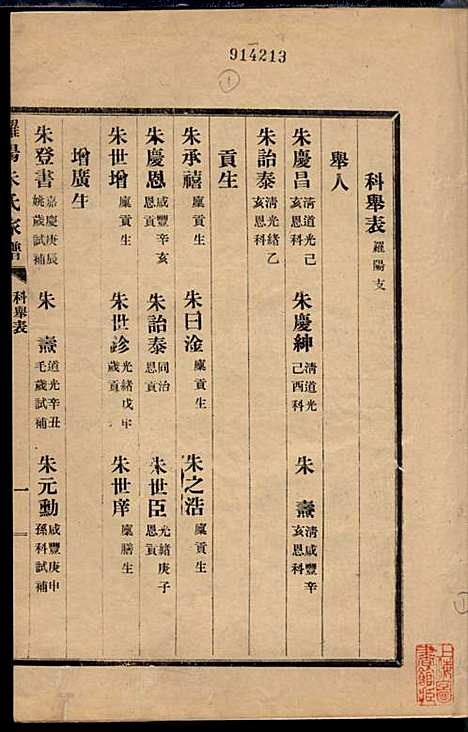 914213
1
科舉表 羅陽支
舉人
朱慶昌 清道光己亥恩科 朱慶紳 清道光己酉科 朱燾 清咸豐辛亥恩科
朱詒泰 清光緒乙亥恩科
貢生
朱承禧 廩貢生 朱曰淦 廩貢生 朱之浩 廩貢生
朱慶恩 咸豐辛亥恩貢 朱詒泰 同治恩貢 朱世臣 光緒庚子恩貢
朱世增 廩貢生 朱世診 光緒戊申歲貢 朱世庠 廩膳生
增廣生
朱登書 嘉慶庚辰姚歲試補 朱燾 道光辛丑毛歲試補 朱元勳 咸豐庚申孫科試補
羅陽朱氏家譜
科舉表
一
上海圖書館